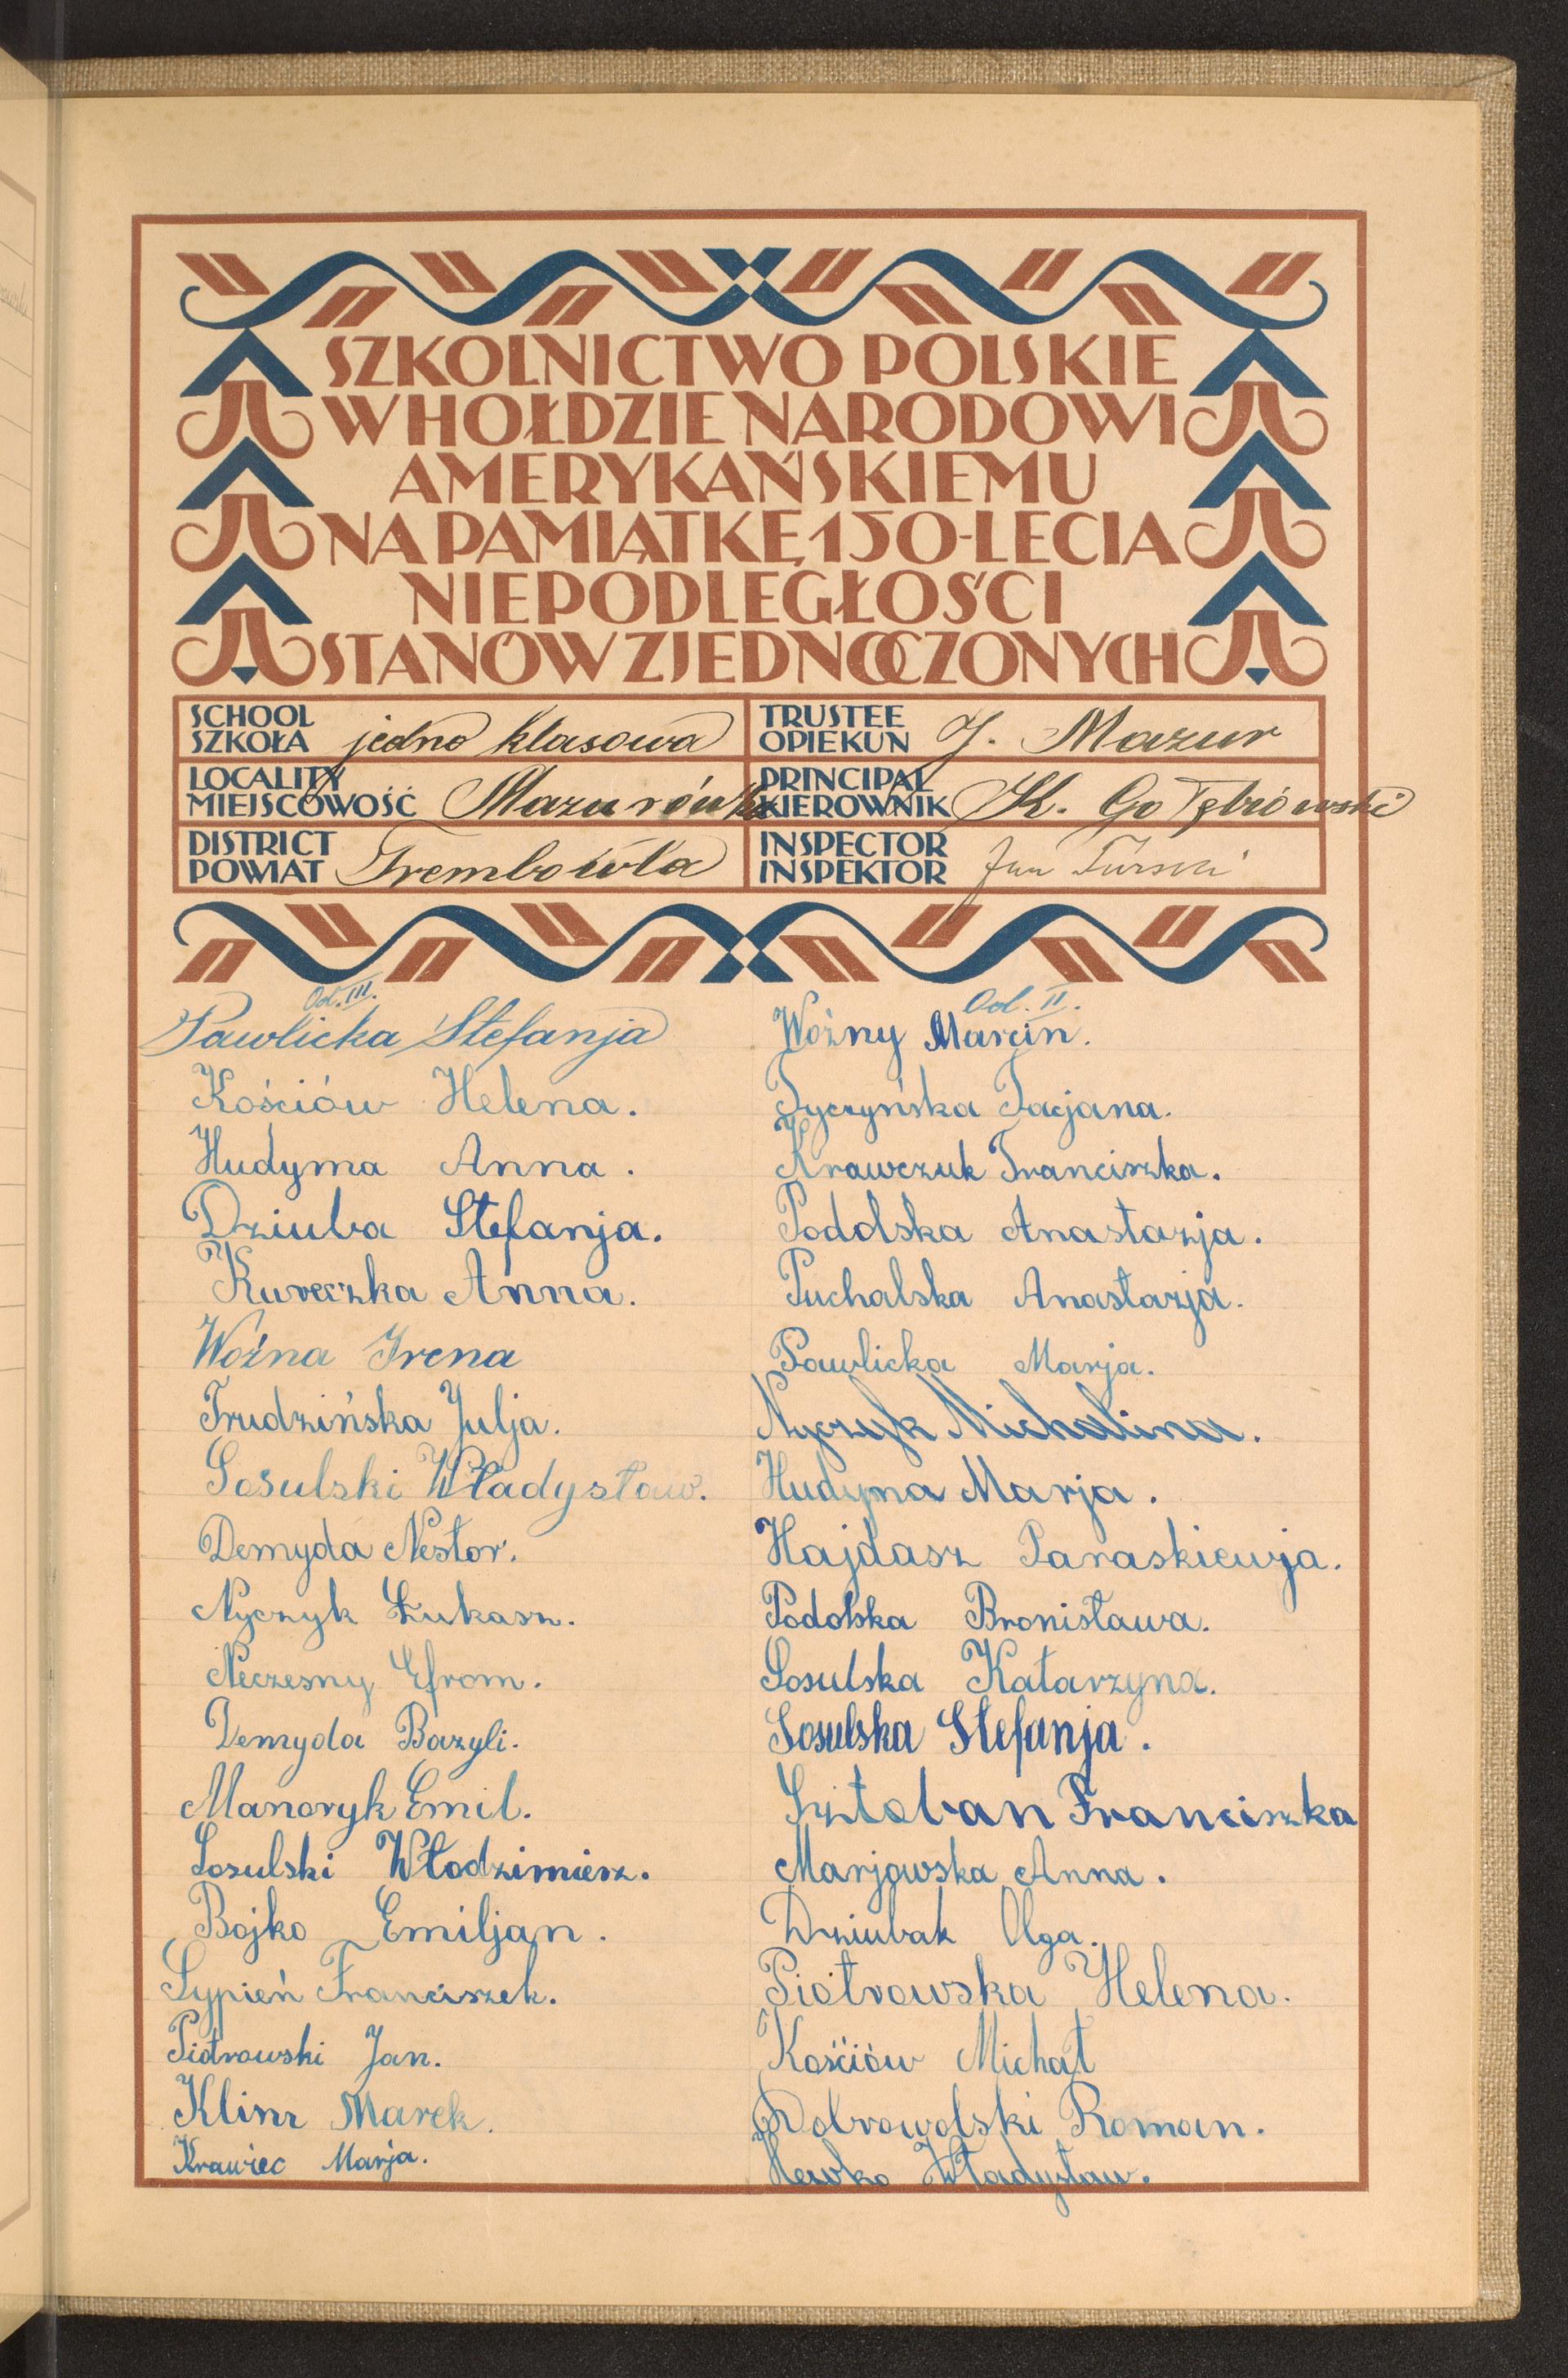 SZKOLNICTWO POLSKIE
W HOŁDZIE NARODOWI
AMERYKAŃSKIEMU
NA PAMIĄTKĘ 150-LECIA
NIEPODLEGŁOŚCI
STANÓW ZJEDNOCZONYCH
SCHOOL
SZKOŁA jedno klasowa
TRUSTEE
OPIEKUN J. Mazur
LOCALITY
MIEJSCOWOŚĆ Mazurówka
PRINCIPAL
KIEROWNIK K. Gołębiówski
DISTRICT
POWIAT Trembowla
INSPECTOR
INSPEKTOR Jan Turski
Od. III.
Pawlicka Stefanja
Kościów Helena.
Hudyma Anna.
Dziuba Stefanja.
Kureczka Anna.
Woźna Irena
Trudzińska Julja.
Sosulski Władysław.
Demyda Nestor.
Nyczyk Łukasz.
Neczesny Efrom.
Demyda Bazyli.
Manoryk Emil.
Sosulski Włodzimiesz.
Bojko Emiljan.
Sypień Franciszek.
Piotrowski Jan.
Klisz Marek.
Krawiec Marja.
Od. II.
Woźny Marcin.
Tyczyńska Tacjana.
Krawczuk Franciszka.
Podolska Anastazja.
Puchalska Anastazja.
Pawlicka Marja.
Nyczyk Michalina.
Hudyma Marja.
Hajdasz Paraskiewja.
Podolska Bronisława.
Sosulska Katarzyna.
Sosulska Stefanja.
Sztoban Franciszka
Marjowska Anna.
Dziubak Olga.
Piotrowska Helena.
Kościów Michał
Dobrowolski Roman.
Hewko Władysław.